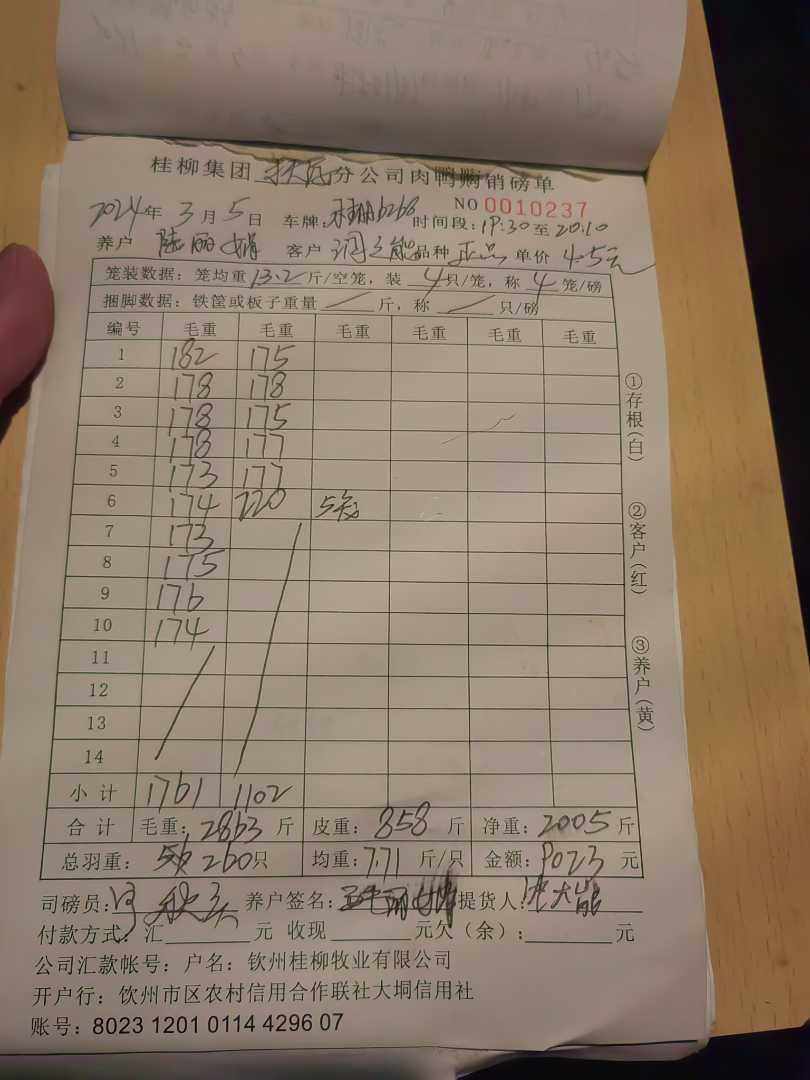 桂柳集团 分公司肉鸭购销磅单
NO 0010237
2024年 3月 5日 车牌: 6268 时间段: 19:30至20:10
养户 陆丽娟 客户 品种 正品 单价 4.5元
笼装数据: 笼均重13.2斤/空笼, 装 4只/笼, 称 4 笼/磅
捆脚数据: 铁筐或板子重量 斤, 称 只/磅
编号 毛重 毛重 毛重 毛重 毛重 毛重
1 182 175
2 178 178
3 178 175
4 178 177
5 173 177
6 174 220 5
7 173
8 175
9 176
10 174
11
12
13
14
小计 1761 1102
合计 毛重: 2863 斤 皮重: 858 斤 净重: 2005 斤
总羽重: 260只 均重: 7.71 斤/只 金额: 9023 元
司磅员: 养户签名: 提货人:
付款方式: 汇 元 收现 元欠(余): 元
公司汇款帐号: 户名: 钦州桂柳牧业有限公司
开户行: 饮州市区农村信用合作联社大垌信用社
账号: 8023 1201 0114 4296 07
①存根(白)
②客户(红)
③养户(黄)